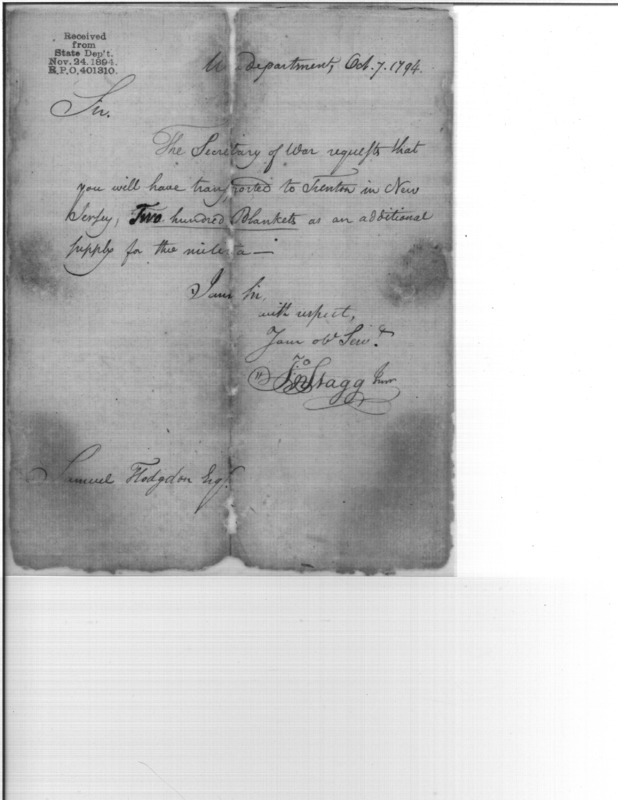 Received
from
State Dep't.
Nov. 24. 1894.
R.P.O. 401310.
War department, Oct. 7. 1794.
Sir.
The Secretary of War requests that
you will have transported to Trenton in New
Jersey, Two hundred Blankets as an additional
supply for the militia —
I am Sir,
with respect,
Your obt. Servt.
Jno Stagg Junr
Samuel Hodgdon Esqr.